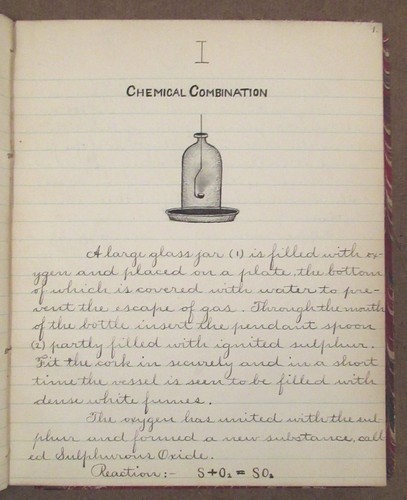 1.
I
CHEMICAL COMBINATION
A large glass jar (1) is filled with ox-
ygen and placed on a plate, the bottom
of which is covered with water to pre-
vent the escape of gas. Through the mouth
of the bottle insert the pendant spoon
(2) partly filled with ignited sulphur.
Fit the cork in securely and in a short
time the vessel is seen to be filled with
dense white fumes.
The oxygen has united with the sul-
phur and formed a new substance, call
ed Sulphurous Oxide.
Reaction:- S+O₂ = SO₂